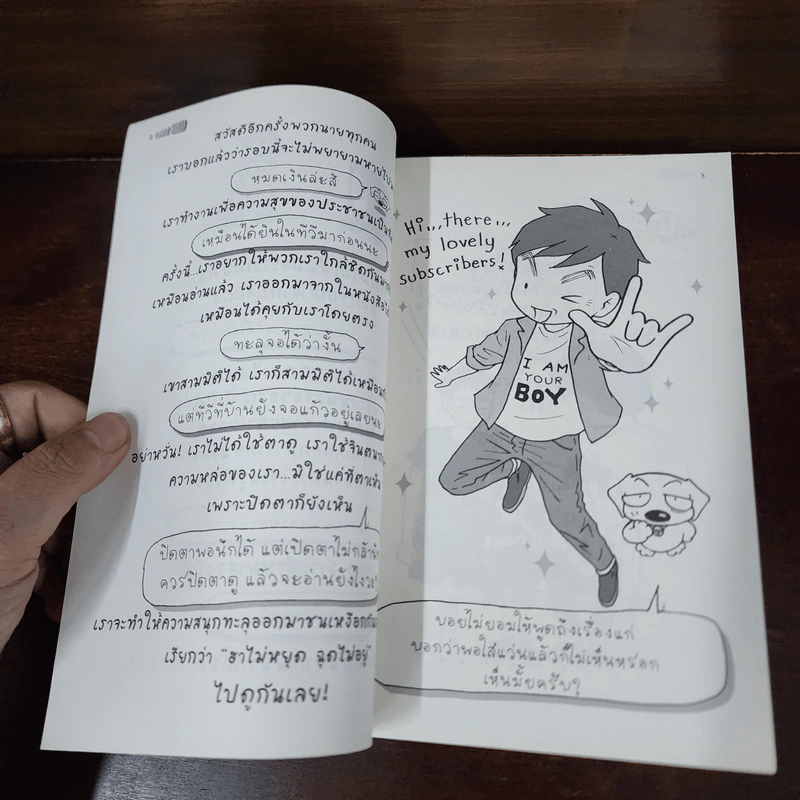 สวัสดีอีกครั้งพวกนายทุกคน
เราบอกแล้วว่ารอบนี้จะไม่พยายามหาย
หมดเงินล่ะสิ
เราทำงานเพื่อความสุขของประชาชนเป็น
เหมือนได้ยินในทีวีมาก่อนนะ
ครั้งนี้...เราอยากให้พวกเราใกล้ชิดกัน
เหมือนอ่านแล้ว เราออกมาจากในหนังสือ
เหมือนได้คุยกับเราโดยตรง
ทะลุจอได้ว่างั้น
เขาสามมิติได้ เราก็สามมิติได้เหมือน
แต่ทีวีที่บ้านยังจอแก้วอยู่เลยนะ
อย่าหวั่น! เราไม่ได้ใช้ตาดู เราใช้
ความหล่อของเรา...มิใช่แค่ที่ตาเห็น
เพราะปิดตาก็ยังเห็น
ปิดตาพอนึกได้ แต่เปิดตาไม่กล้า
ควรปิดตาดู แล้วจะอ่านยังไงวะ
เราจะทำให้ความสนุกทะลุออกมาชนเหงือก
เรียกว่า "ฮาไม่หยุด ฉุดไม่อยู่"
ไปดูกันเลย!
5
Hi,,,there,,,
my lovely
subscribers!
I AM
YOUR
BOY
บอยไม่ยอมให้พูดถึงเรื่องแก่
บอกว่าพอใส่แว่นแล้วก็ไม่เห็นหรอก
เห็นมั้ยครับ?